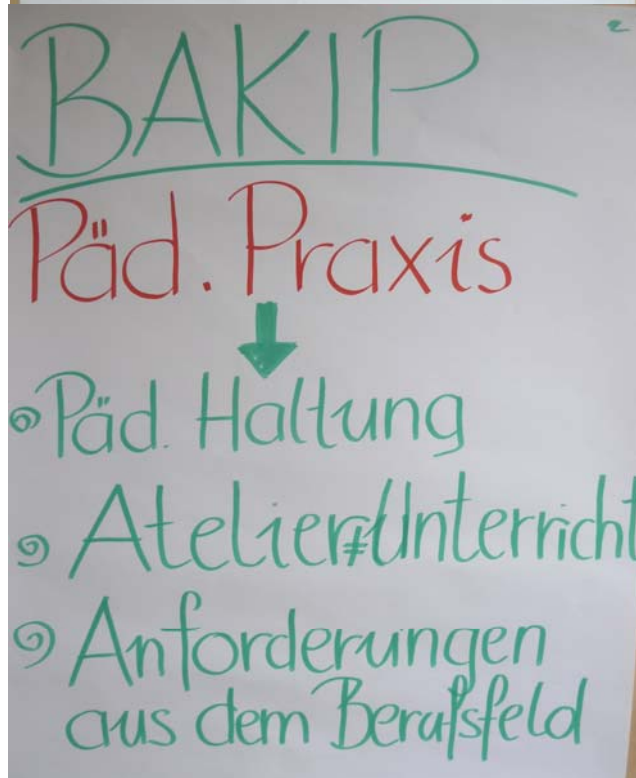 2
BAKIP
Päd. Praxis
Päd. Haltung
Atelier≠Unterricht
Anforderungen
aus dem Berufsfeld